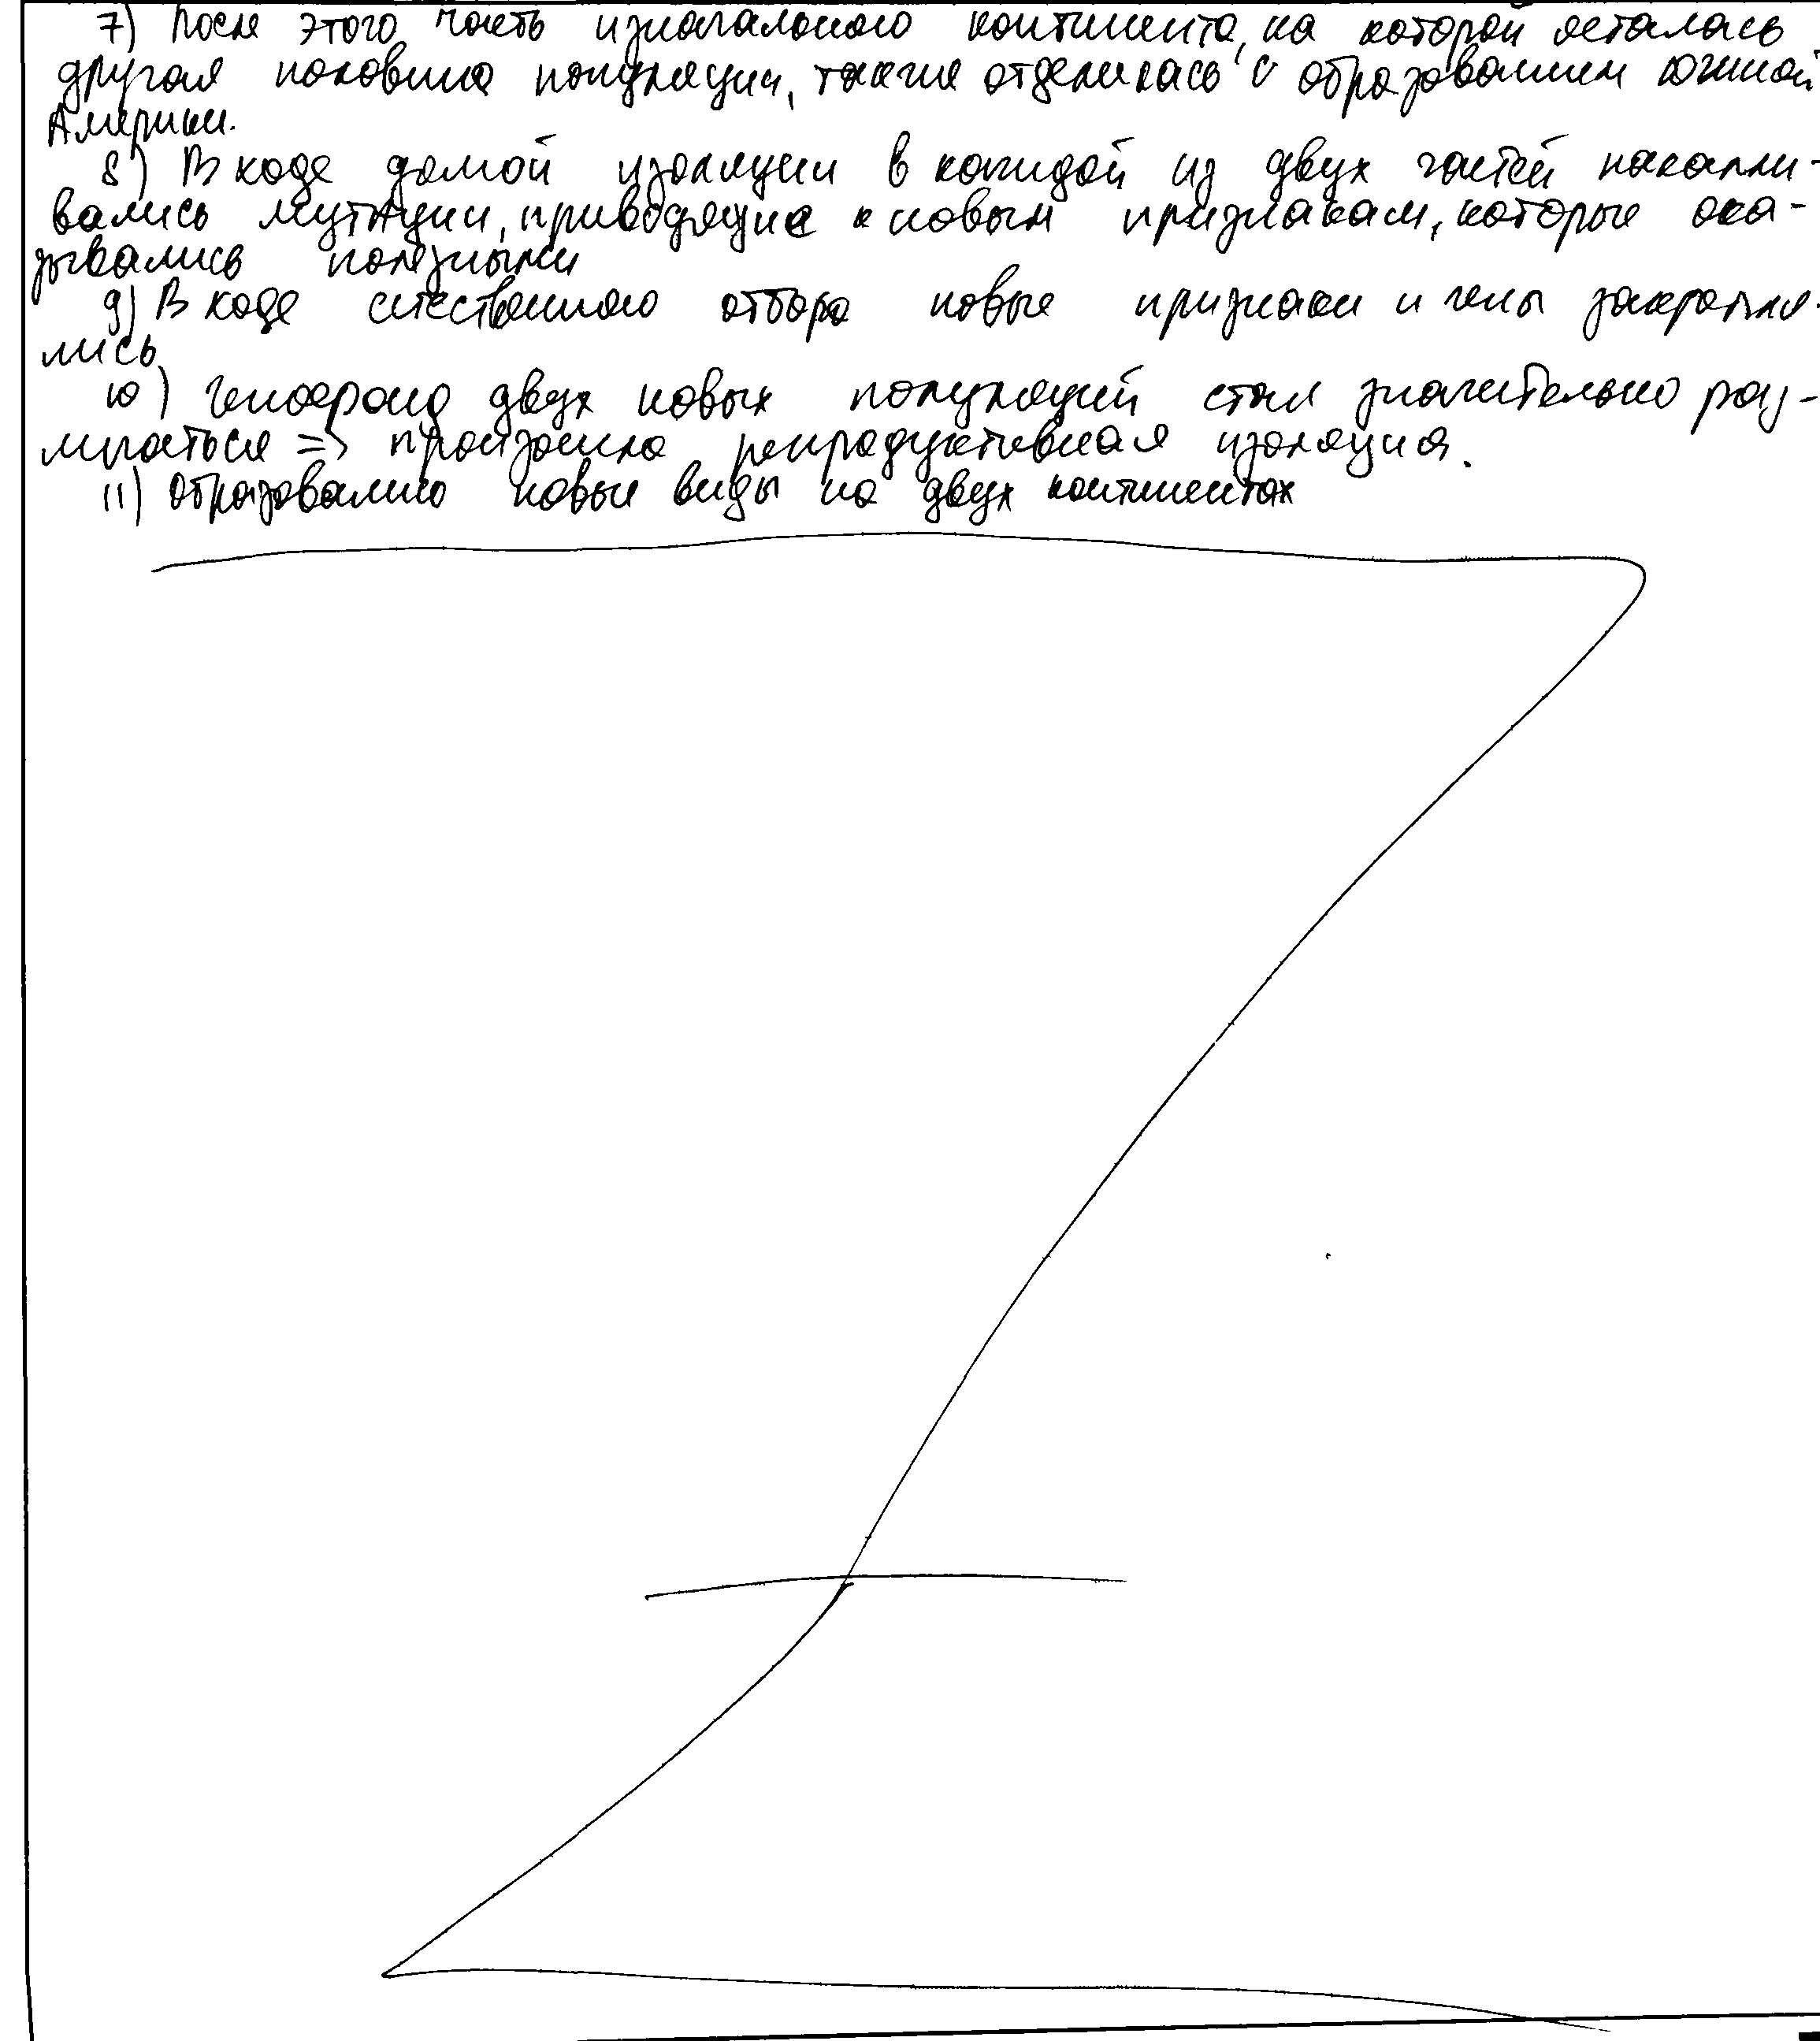 7) После этого часть изначального континента, на которой осталась
другая половина популяции, также отделилась с образованием Южной
Америки.
8) В ходе данной изоляции в каждой из двух частей накапли-
вались мутации, приводящие к новым признакам, которые ока-
зывались полезными
9) В ходе естественного отбора новые признаки и гены закрепля-
лись
10) Генофонд двух новых популяций стал значительно раз-
личаться => произошла репродуктивная изоляция.
11) Образовались новые виды на двух континентах